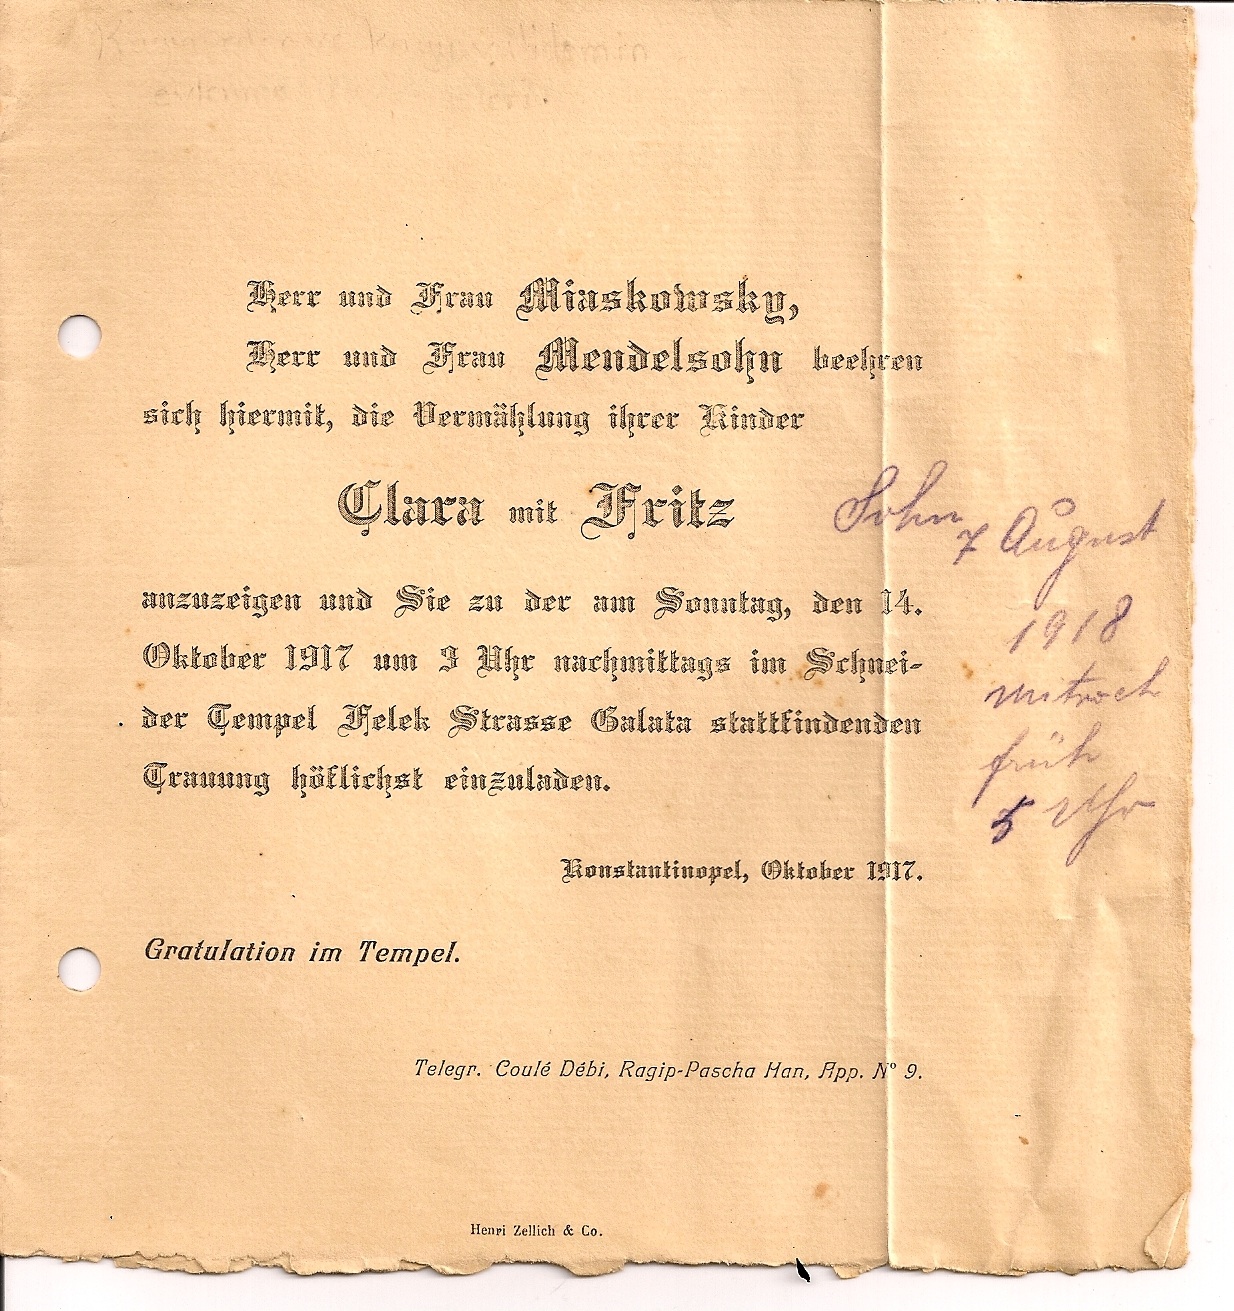 Herr und Frau Miaskowsky,
Herr und Frau Mendelsohn beehren
sich hiermit, die Vermählung ihrer Kinder
Clara mit Fritz
anzuzeigen und Sie zu der am Sonntag, den 14.
Oktober 1917 um 3 Uhr nachmittags im Schnei-
der Tempel Felek Strasse Galata stattfindenden
Trauung höflichst einzuladen.
Konstantinopel, Oktober 1917.
Gratulation im Tempel.
Telegr. Coulé Débi, Ragip-Pascha Han, App. Nº 9.
Henri Zellich & Co.
Sohn
7 August
1918
mitwoch
früh
5 Uhr